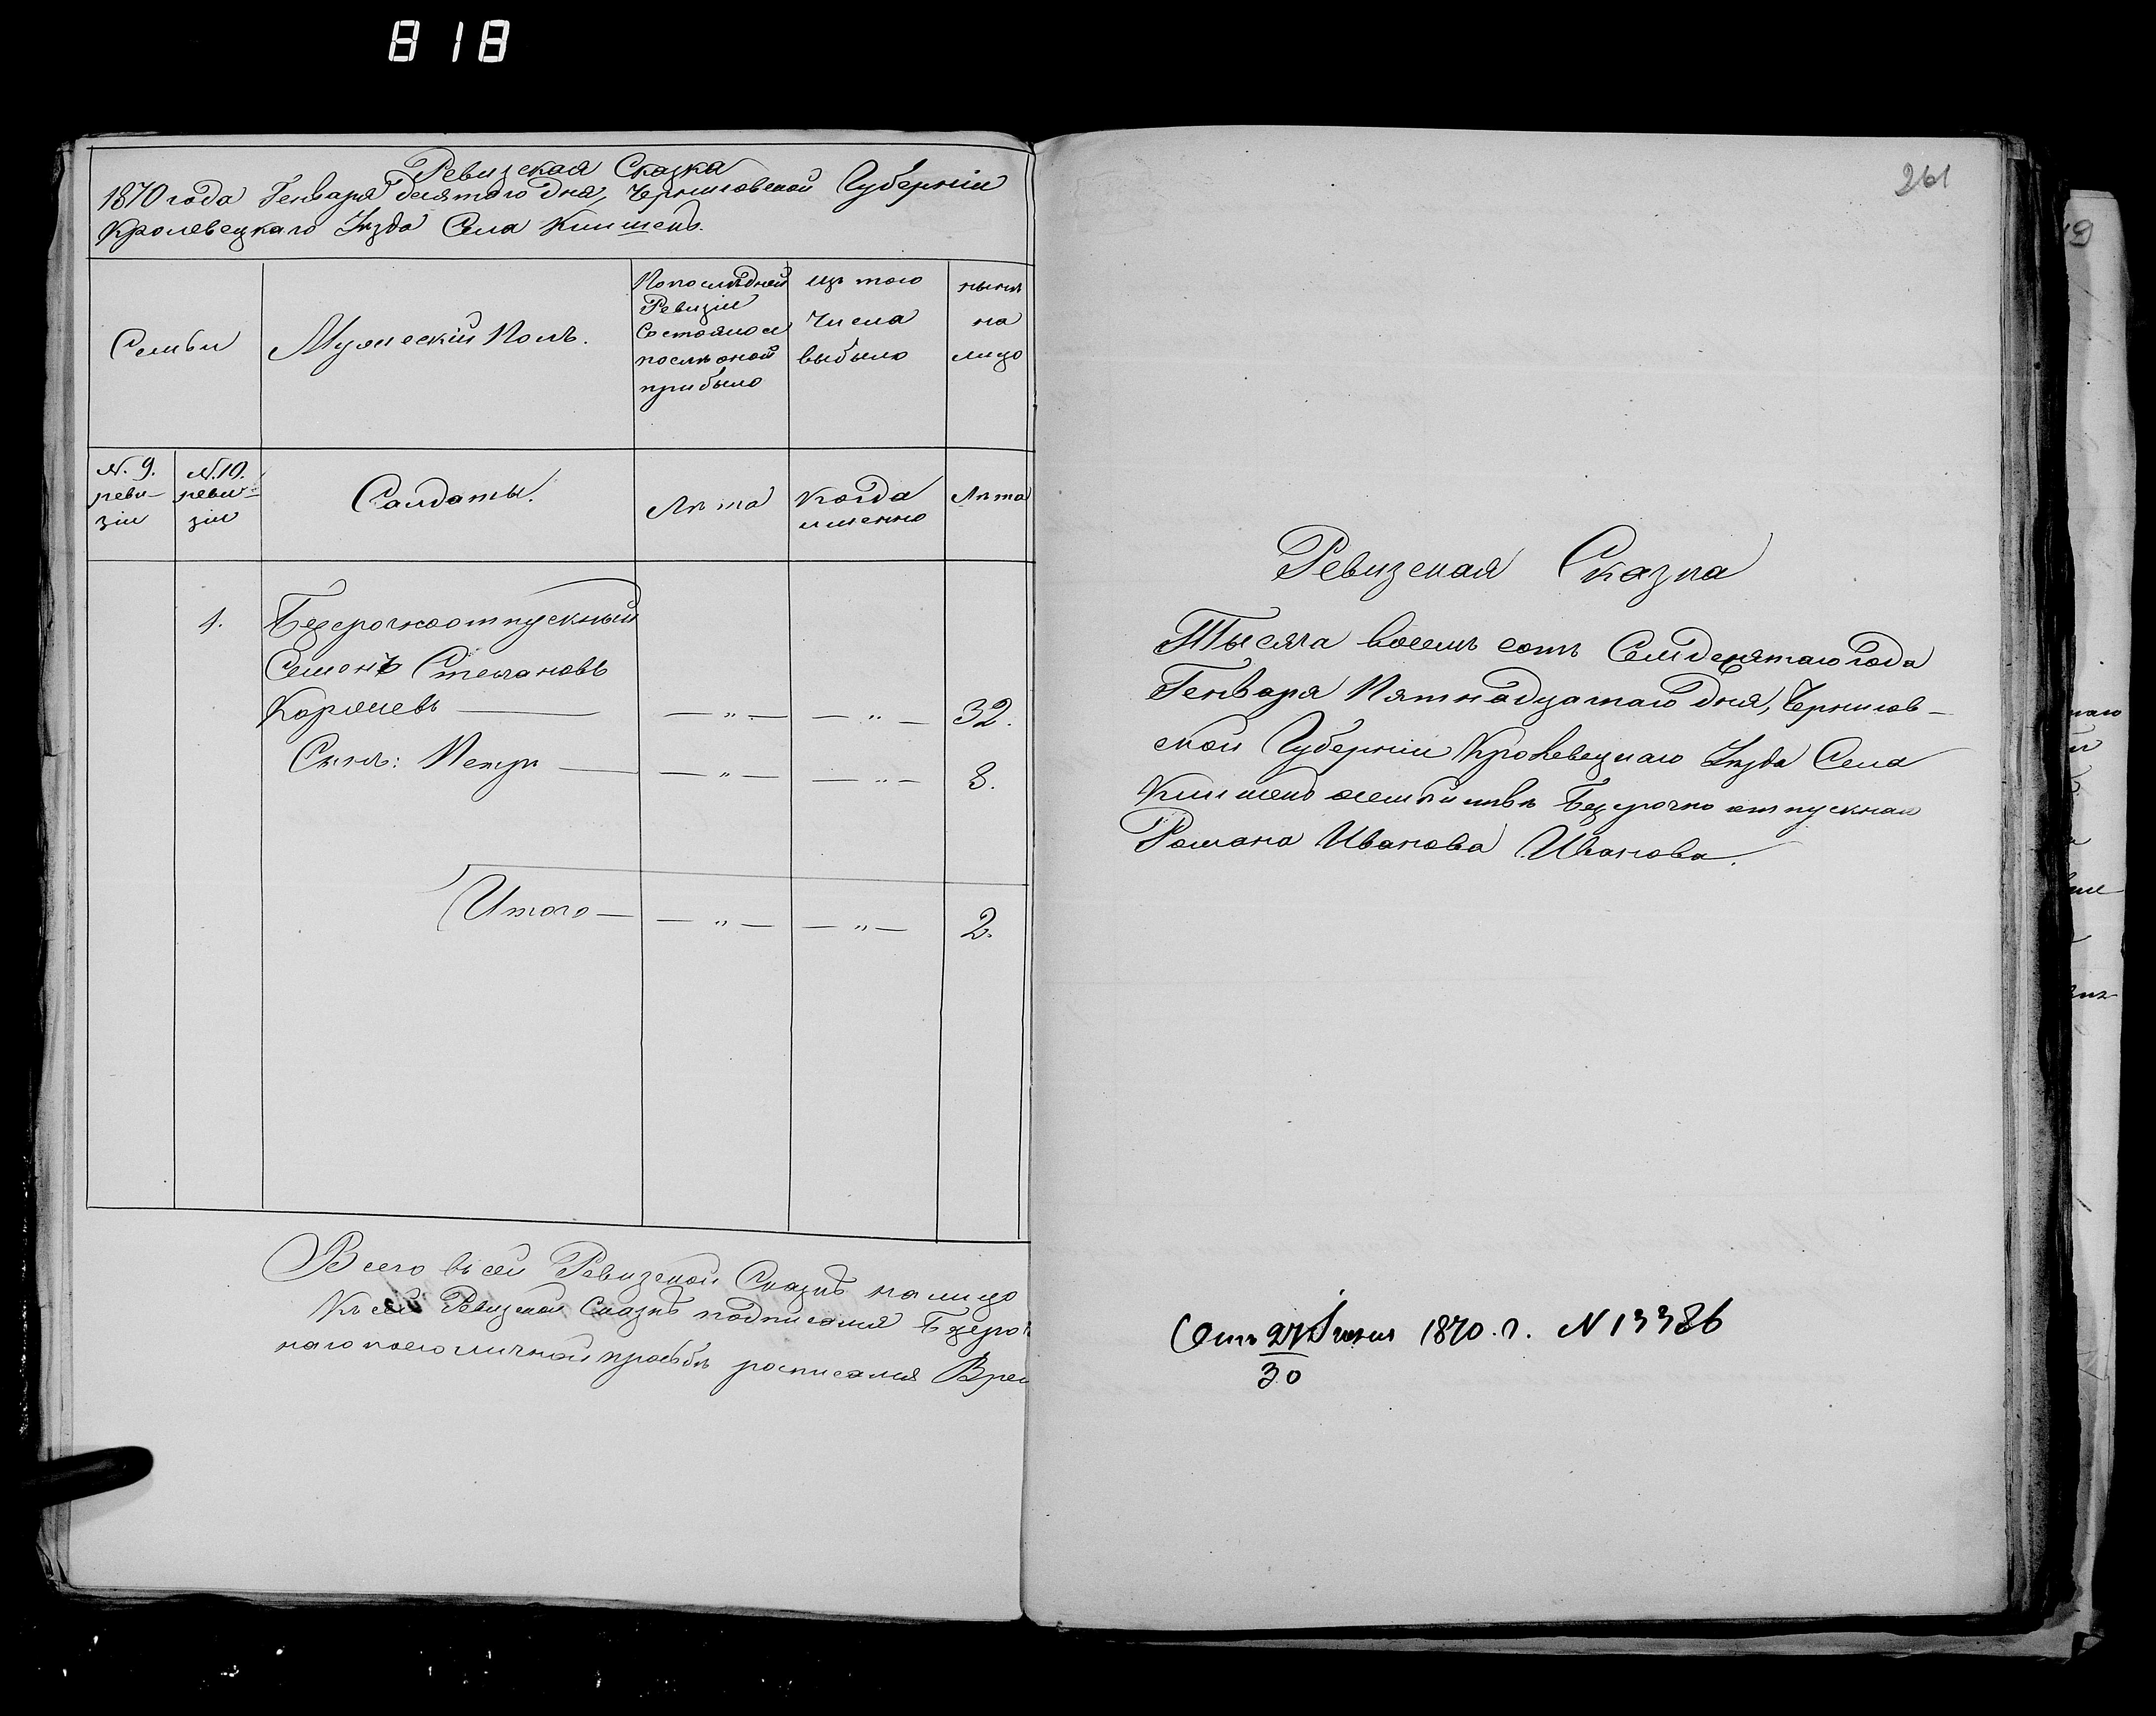 818
Ревизская Сказка
1870 года Генваря десятого дня, Черниговской Губернии
Кролевецкаго Уезда Села
Семьи
Мужеский Полъ.
По последней
Ревизии
Состояло и
после оной
прибыло
изъ того
Числа
выбыло
ныне
на
лицо
N. 9.
реви-
зии
N. 10.
реви-
зии
Салдаты.
Лѣта
Когда
именно
Лѣта
1.
Безсрочноотпускный
Семенъ Степановъ
— „ — — „ — 32.
Сынъ: Петръ — — „ — — „ — 8.
Итого — — „ — — „ — 2.
Всего въ сей Ревизской Сказкѣ на лицо
Къ сей Ревизской Сказкѣ подписался
наго по его личной прозьбѣ росписался
261
Ревизская Сказка
Тысяча восемъ сотъ Семдесятаго года
Генваря Пятнадцатаго дня, Чернигов-
ской Губернии Кролевецкаго Уезда Села
Безсрочно отпускнаго
Романа Иванова Иванова.
1870. г. N 13386
30